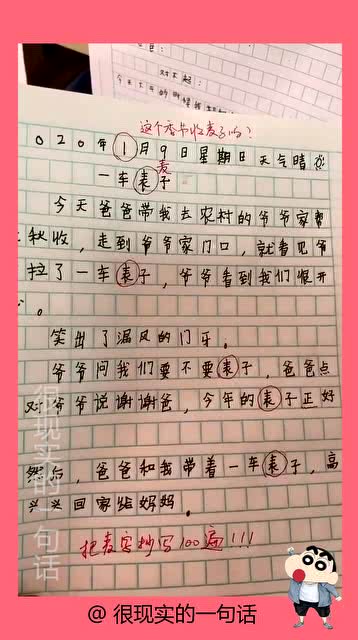 对不起:
这个季节收麦子吗?
020年1月9日星期日天气晴
麦
一车表子
今天爸爸带我去农村的爷爷家帮
秋收,走到爷爷家门口,就看见爷
拉了一车表子,爷爷看到我们很开
。
笑出了漏风的门牙。
爷爷问我们要不要表子,爸爸点
对爷爷说谢谢爸,今年的表子正好
然后,爸爸和我带着一车表子,高
兴兴回家给妈妈。
把麦字抄写100遍!!!
很现实的一句话
@ 很现实的一句话